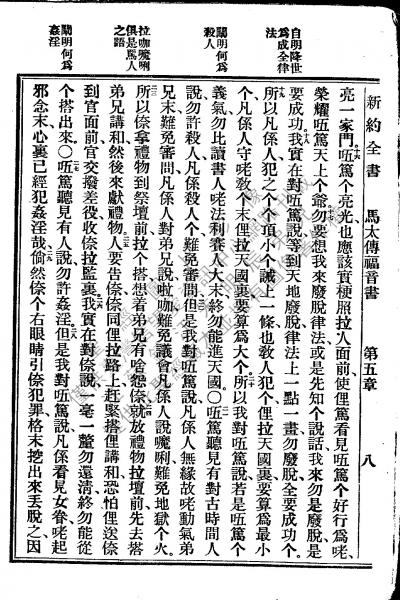 新約全書 馬太傳福音書 第五章 八
自明降世
爲成全律
法
闡明何爲
殺人
拉咖嚜唎
俱是罵人
之語
闡明何爲
姦淫
亮一家門㕶篤个亮光也應該實梗照拉人面前使俚篤看見㕶篤个好行爲咾
榮耀㕶篤天上个爺勿要想我來廢脫律法或是先知个說話我來勿是廢脫是
要成功我實在對㕶篤說等到天地廢脫律法上一點一畫勿廢脫全要成功个
所以凡係人犯之个十頂小个誡上一條也敎人犯个俚拉天國裏要算爲最小
个凡係人守咾敎个末俚拉天國裏要算爲大个所以我對㕶篤說若是㕶篤个
義氣勿比讀書人咾法利賽人大末終勿能進天國〇㕶篤聽見有對古時間人
說勿許殺人凡係殺人个難免審問但是我對㕶篤說凡係人無緣故咾動氣弟
兄末難免審問凡係人對弟兄說啦咖難免議會凡係人說嚜唎難免地獄个火
所以倷拿禮物到祭壇前拉个搭想着弟兄有啥怨倷就放禮物拉壇前先去搭
弟兄講和然後來獻禮物人要告倷倷同俚拉路上赶緊搭俚講和恐怕俚送倷
到官面前官交撥差役收倷拉監裏我實在對倷說一毫一釐勿還淸終勿能從
个搭出來〇㕶篤聽見有人說勿許姦淫但是我對㕶篤說凡係看見女眷咾起
邪念末心裏已經犯姦淫哉倘然倷个右眼睛引倷犯罪格末挖出來丟脫之因